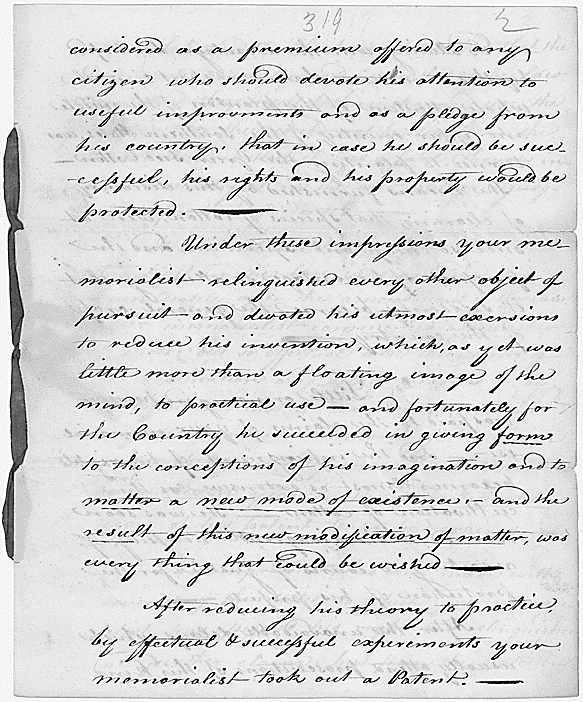 319 2
considered as a premium offered to any
citizen who should devote his attention to
useful improvments and as a pledge from
his country, that in case he should be suc-
-cessful, his rights and his property would be
protected. —
Under these impressions your me-
morialist relinquished every other object of
pursuit and devoted his utmost exersions
to reduce his invention, which, as yet was
little more than a floating image of the
mind, to practical use — and fortunately for
the Country he succeeded in giving form
to the conceptions of his imagination and to
matter a new mode of existence; — and the
result of this new modification of matter, was
every thing that could be wished —
After reducing his theory to practice,
by effectual & successful experiments your
memorialist took out a Patent. —